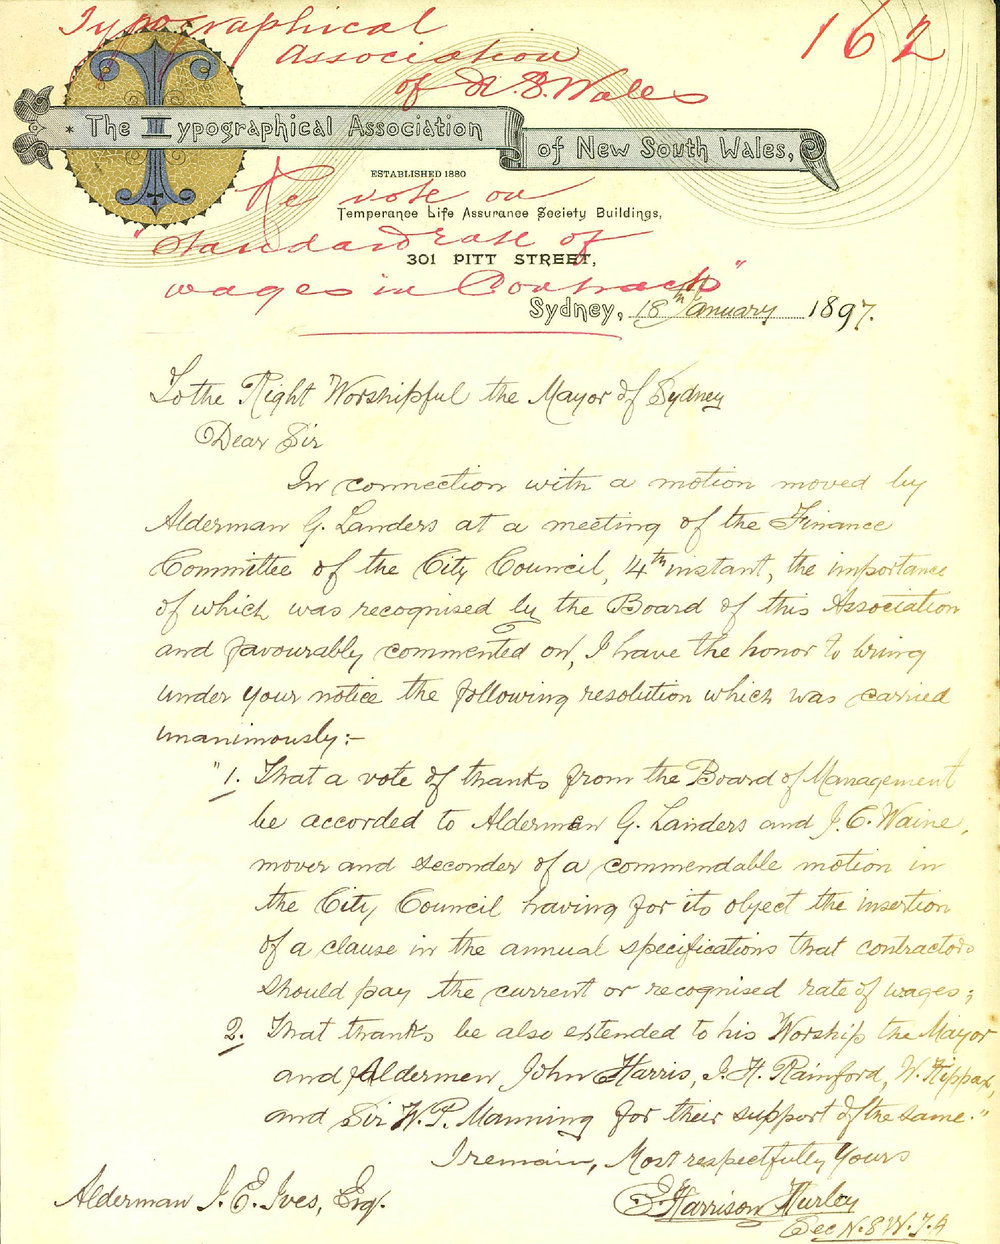 Typographical
Association
of N. S. Wales
162
The Typographical Association
of New South Wales,
ESTABLISHED 1880
Re vote on
Temperance Life Assurance Society Buildings,
"Standard rate of
301 PITT STREET,
wages in Contracts"
Sydney, 18th January 1897.
To the Right Worshipful the Mayor of Sydney
Dear Sir
In connection with a motion moved by
Alderman G. Landers at a meeting of the Finance
Committee of the City Council, 14th instant, the importance
of which was recognised by the Board of this Association
and favourably commented on, I have the honor to bring
under your notice the following resolution which was carried
unanimously:-
"1. That a vote of thanks from the Board of Management
be accorded to Aldermen G. Landers and J. C. Waine,
mover and seconder of a commendable motion in
the City Council having for its object the insertion
of a clause in the annual specifications that contractors
should pay the current or recognised rate of wages;
2. That thanks be also extended to his Worship the Mayor
and Aldermen John Harris, J. H. Rainford, W. Rippax,
and Sir W. P. Manning for their support of the same."
I remain, Most respectfully Yours
Alderman I. E. Ives, Esq.
E. Harrison Hurley
Sec N.S.W.T.A